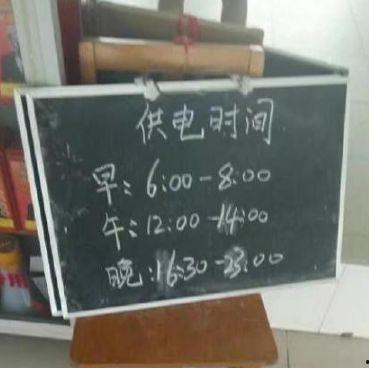 供电时间
早: 6:00-8:00
午: 12:00-14:00
晚: 16:30-23:00